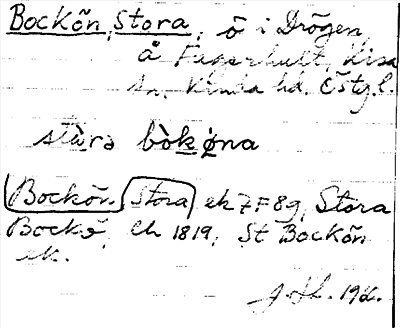 Bockön, Stora, ö i Drögen,
å Fagerhult, Kisa
sn, Kinda hd. Östgl.
stu̇rə bòkøna
Bockön, Stora ek 7F8g, Stora
Bockö, ek 1819, St Bockön
ek.